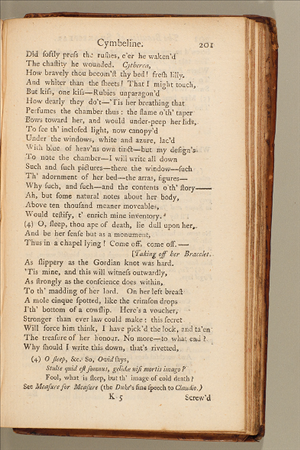 Cymbeline. 201
Did softly press the rushes, e'er he waken'd
The chastity he wounded. Cytherea,
How bravely thou becom'st thy bed! fresh lilly,
And whiter than the sheets! That I might touch,
But kiss, one kiss—Rubies unparagon'd
How dearly they do't—'Tis her breathing that
Perfumes the chamber thus: the flame o'th' taper
Bows toward her, and would under-peep her lids,
To see th' inclosed light, now canopy'd
Under the windows, white and azure, lac'd
With blue of heav'ns own tinct—but my design's
To note the chamber—I will write all down
Such and such pictures—there the window—such
Th' adornment of her bed—the arras, figures—
Why such, and such—and the contents o'th' story—
Ah, but some natural notes about her body,
Above ten thousand meaner moveables,
Would testify, t' enrich mine inventory.
(4) O, sleep, thou ape of death, lie dull upon her,
And be her sense but as a monument,
Thus in a chapel lying! Come off, come off.—
[Taking off her Bracelet.
As slippery as the Gordian knot was hard.
'Tis mine, and this will witness outwardly,
As strongly as the conscience does within,
To th' madding of her lord. On her left breast
A mole cinque spotted, like the crimson drops
I'th' bottom of a cowslip. Here's a voucher,
Stronger than ever law could make: this secret
Will force him think, I have pick'd the lock, and ta'en
The treasure of her honour. No more—to what end?
Why should I write this down, that's rivetted,
(4) O sleep, &c. So, Ovid says,
Stulte quid est somnus, gelidæ nisi mortis imago?
Fool, what is sleep, but th' image of cold death?
See Measure for Measure (the Duke's fine speech to Claudio.)
K 5 Screw'd